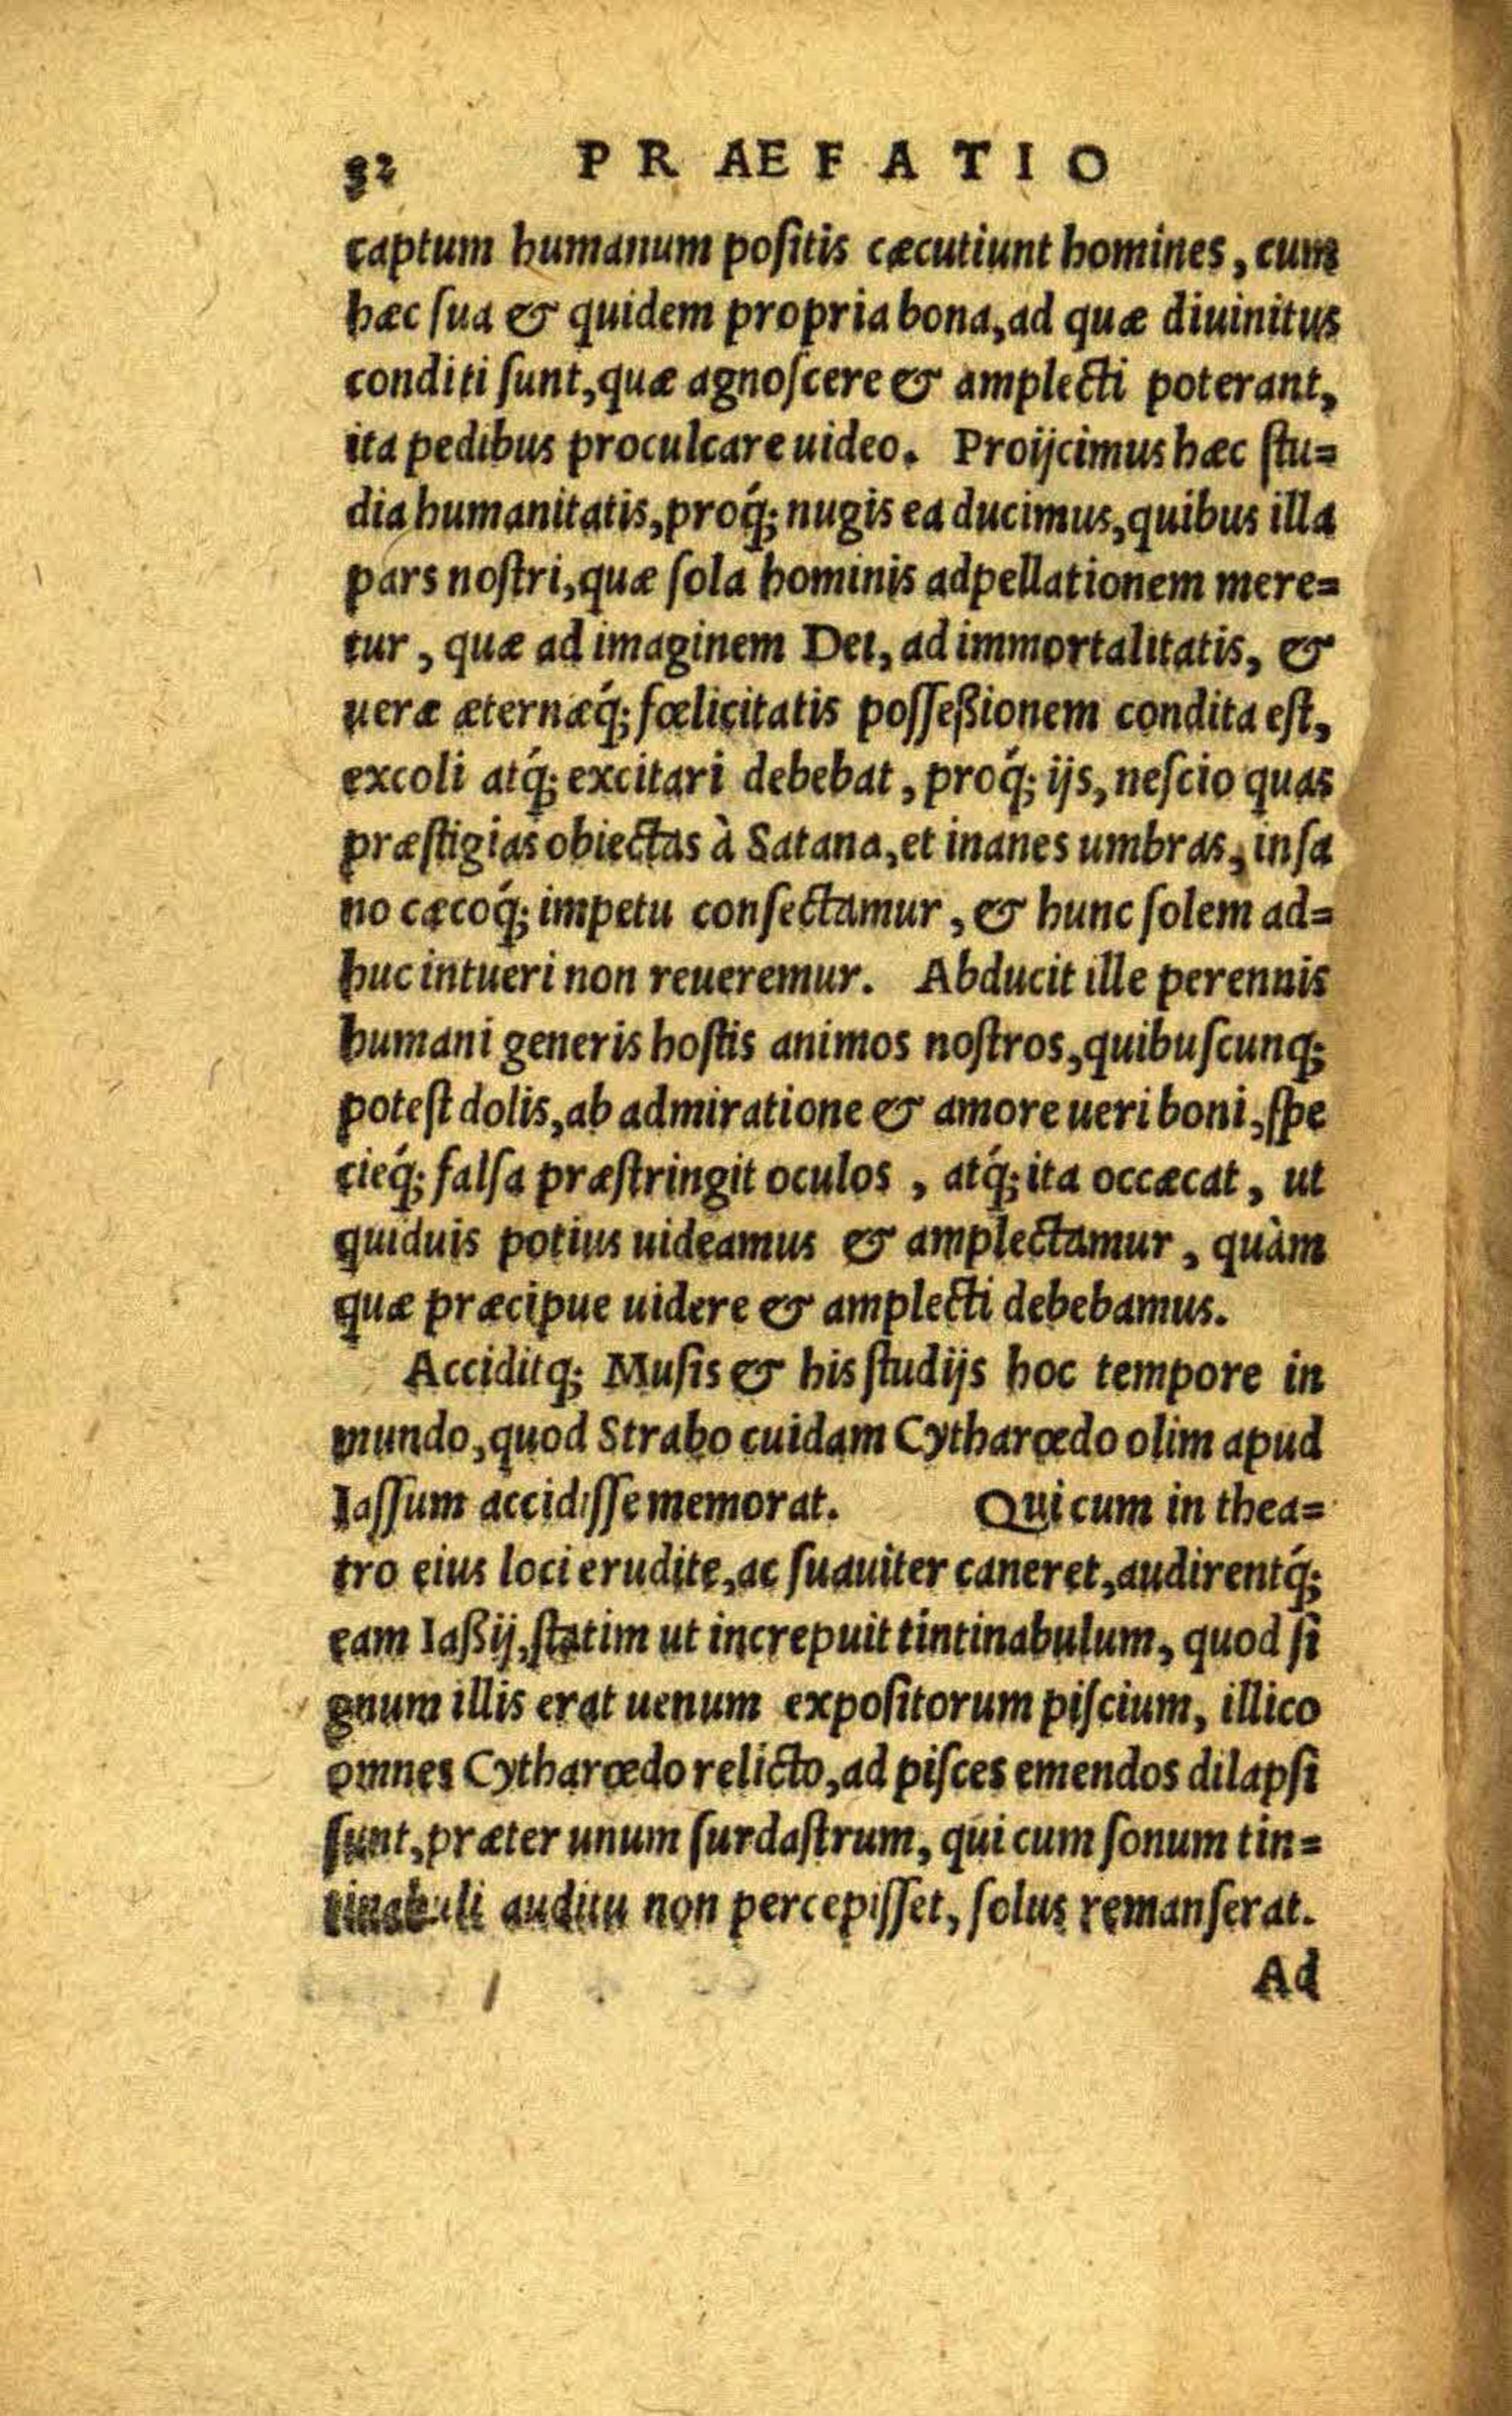 32 PRAEFATIO
captum humanum poſitis cæcutiunt homines, cum
hæc ſua & quidem propria bona, ad quæ diuinitus
conditi ſunt, quæ agnoſcere & amplecti poterant,
ita pedibus proculcare uideo. Proijcimus hæc ſtu=
dia humanitatis, proq́; nugis ea ducimus, quibus illa
pars noſtri, quæ ſola hominis adpellationem mere=
tur, quæ ad imaginem Dei, ad immortalitatis, &
ueræ æternæq́; fœlicitatis poſſeßionem condita eſt,
excoli atq́; excitari debebat, proq́; ijs, neſcio quas
præſtigias obiectas à Satana, et inanes umbras, inſa
no cæcoq́; impetu conſectamur, & hunc ſolem ad=
huc intueri non reueremur. Abducit ille perennis
humani generis hoſtis animos noſtros, quibuſcunq;
poteſt dolis, ab admiratione & amore ueri boni, ſpe
cieq́; falſa præſtringit oculos, atq́; ita occæcat, ut
quiduis potius uideamus & amplectamur, quàm
quæ præcipue uidere & amplecti debebamus.
Acciditq; Muſis & his ſtudijs hoc tempore in
mundo, quod Strabo cuidam Cytharœdo olim apud
Iaſſum accidiſſe memorat. Qui cum in thea=
tro eius loci erudite, ac ſuauiter caneret, audirentq́;
eam Iaßij, ſtatim ut increpuit tintinabulum, quod ſi
gnum illis erat uenum expoſitorum piſcium, illico
omnes Cytharœdo relicto, ad piſces emendos dilapſi
ſunt, præter unum ſurdaſtrum, qui cum ſonum tin=
tinabuli auditu non percepiſſet, ſolus remanſerat.
Ad